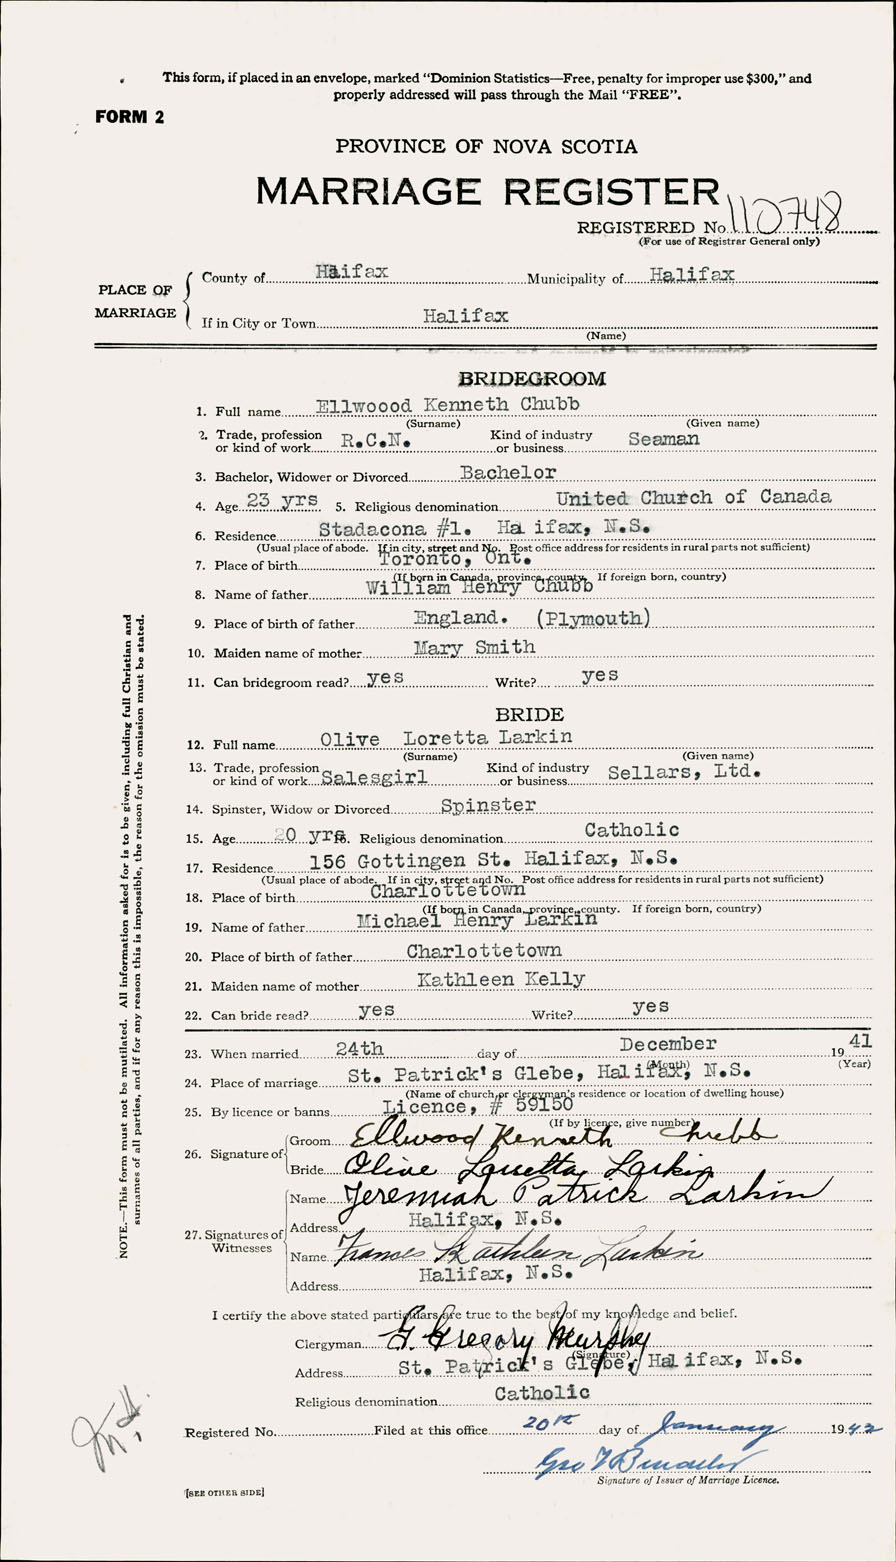 This form, if placed in an envelope, marked "Dominion Statistics—Free, penalty for improper use $300," and
properly addressed will pass through the Mail "FREE".
FORM 2
PROVINCE OF NOVA SCOTIA
MARRIAGE REGISTER
REGISTERED No. 110748
(For use of Registrar General only)
PLACE OF MARRIAGE
County of Haifax Municipality of Halifax
If in City or Town Halifax
(Name)
BRIDEGROOM
1. Full name Ellwoood Kenneth Chubb
(Surname) (Given name)
2. Trade, profession or kind of work R.C.N. Kind of industry or business Seaman
3. Bachelor, Widower or Divorced Bachelor
4. Age 23 yrs 5. Religious denomination United Church of Canada
6. Residence Stadacona #1. Ha ifax, N.S.
(Usual place of abode. If in city, street and No. Post office address for residents in rural parts not sufficient)
7. Place of birth Toronto, Ont.
(If born in Canada, province, county. If foreign born, country)
8. Name of father William Henry Chubb
9. Place of birth of father England. (Plymouth)
10. Maiden name of mother Mary Smith
11. Can bridegroom read? yes Write? yes
BRIDE
12. Full name Olive Loretta Larkin
(Surname) (Given name)
13. Trade, profession or kind of work Salesgirl Kind of industry or business Sellars, Ltd.
14. Spinster, Widow or Divorced Spinster
15. Age 20 yrs 16. Religious denomination Catholic
17. Residence 156 Gottingen St. Halifax, N.S.
(Usual place of abode. If in city, street and No. Post office address for residents in rural parts not sufficient)
18. Place of birth Charlottetown
(If born in Canada, province, county. If foreign born, country)
19. Name of father Michael Henry Larkin
20. Place of birth of father Charlottetown
21. Maiden name of mother Kathleen Kelly
22. Can bride read? yes Write? yes
23. When married 24th day of December 19 41
(Month) (Year)
24. Place of marriage St. Patrick's Glebe, Halifax, N.S.
(Name of church or clergyman's residence or location of dwelling house)
25. By licence or banns Licence, # 59150
(If by licence, give number)
26. Signature of
Groom Ellwood Kenneth Chubb
Bride Olive Loretta Larkin
27. Signatures of Witnesses
Name Jeremiah Patrick Larkin
Address Halifax, N.S.
Name Frances Kathleen Larkin
Address Halifax, N.S.
I certify the above stated particulars are true to the best of my knowledge and belief.
Clergyman G. Gregory Murphy
(Signature)
Address St. Patrick's Glebe, Halifax, N.S.
Religious denomination Catholic
Registered No. Filed at this office 20th day of January 19 42
Signature of Issuer of Marriage Licence.
[SEE OTHER SIDE]
NOTE.—This form must not be mutilated. All information asked for is to be given, including full Christian and
surnames of all parties, and if for any reason this is impossible, the reason for the omission must be stated.